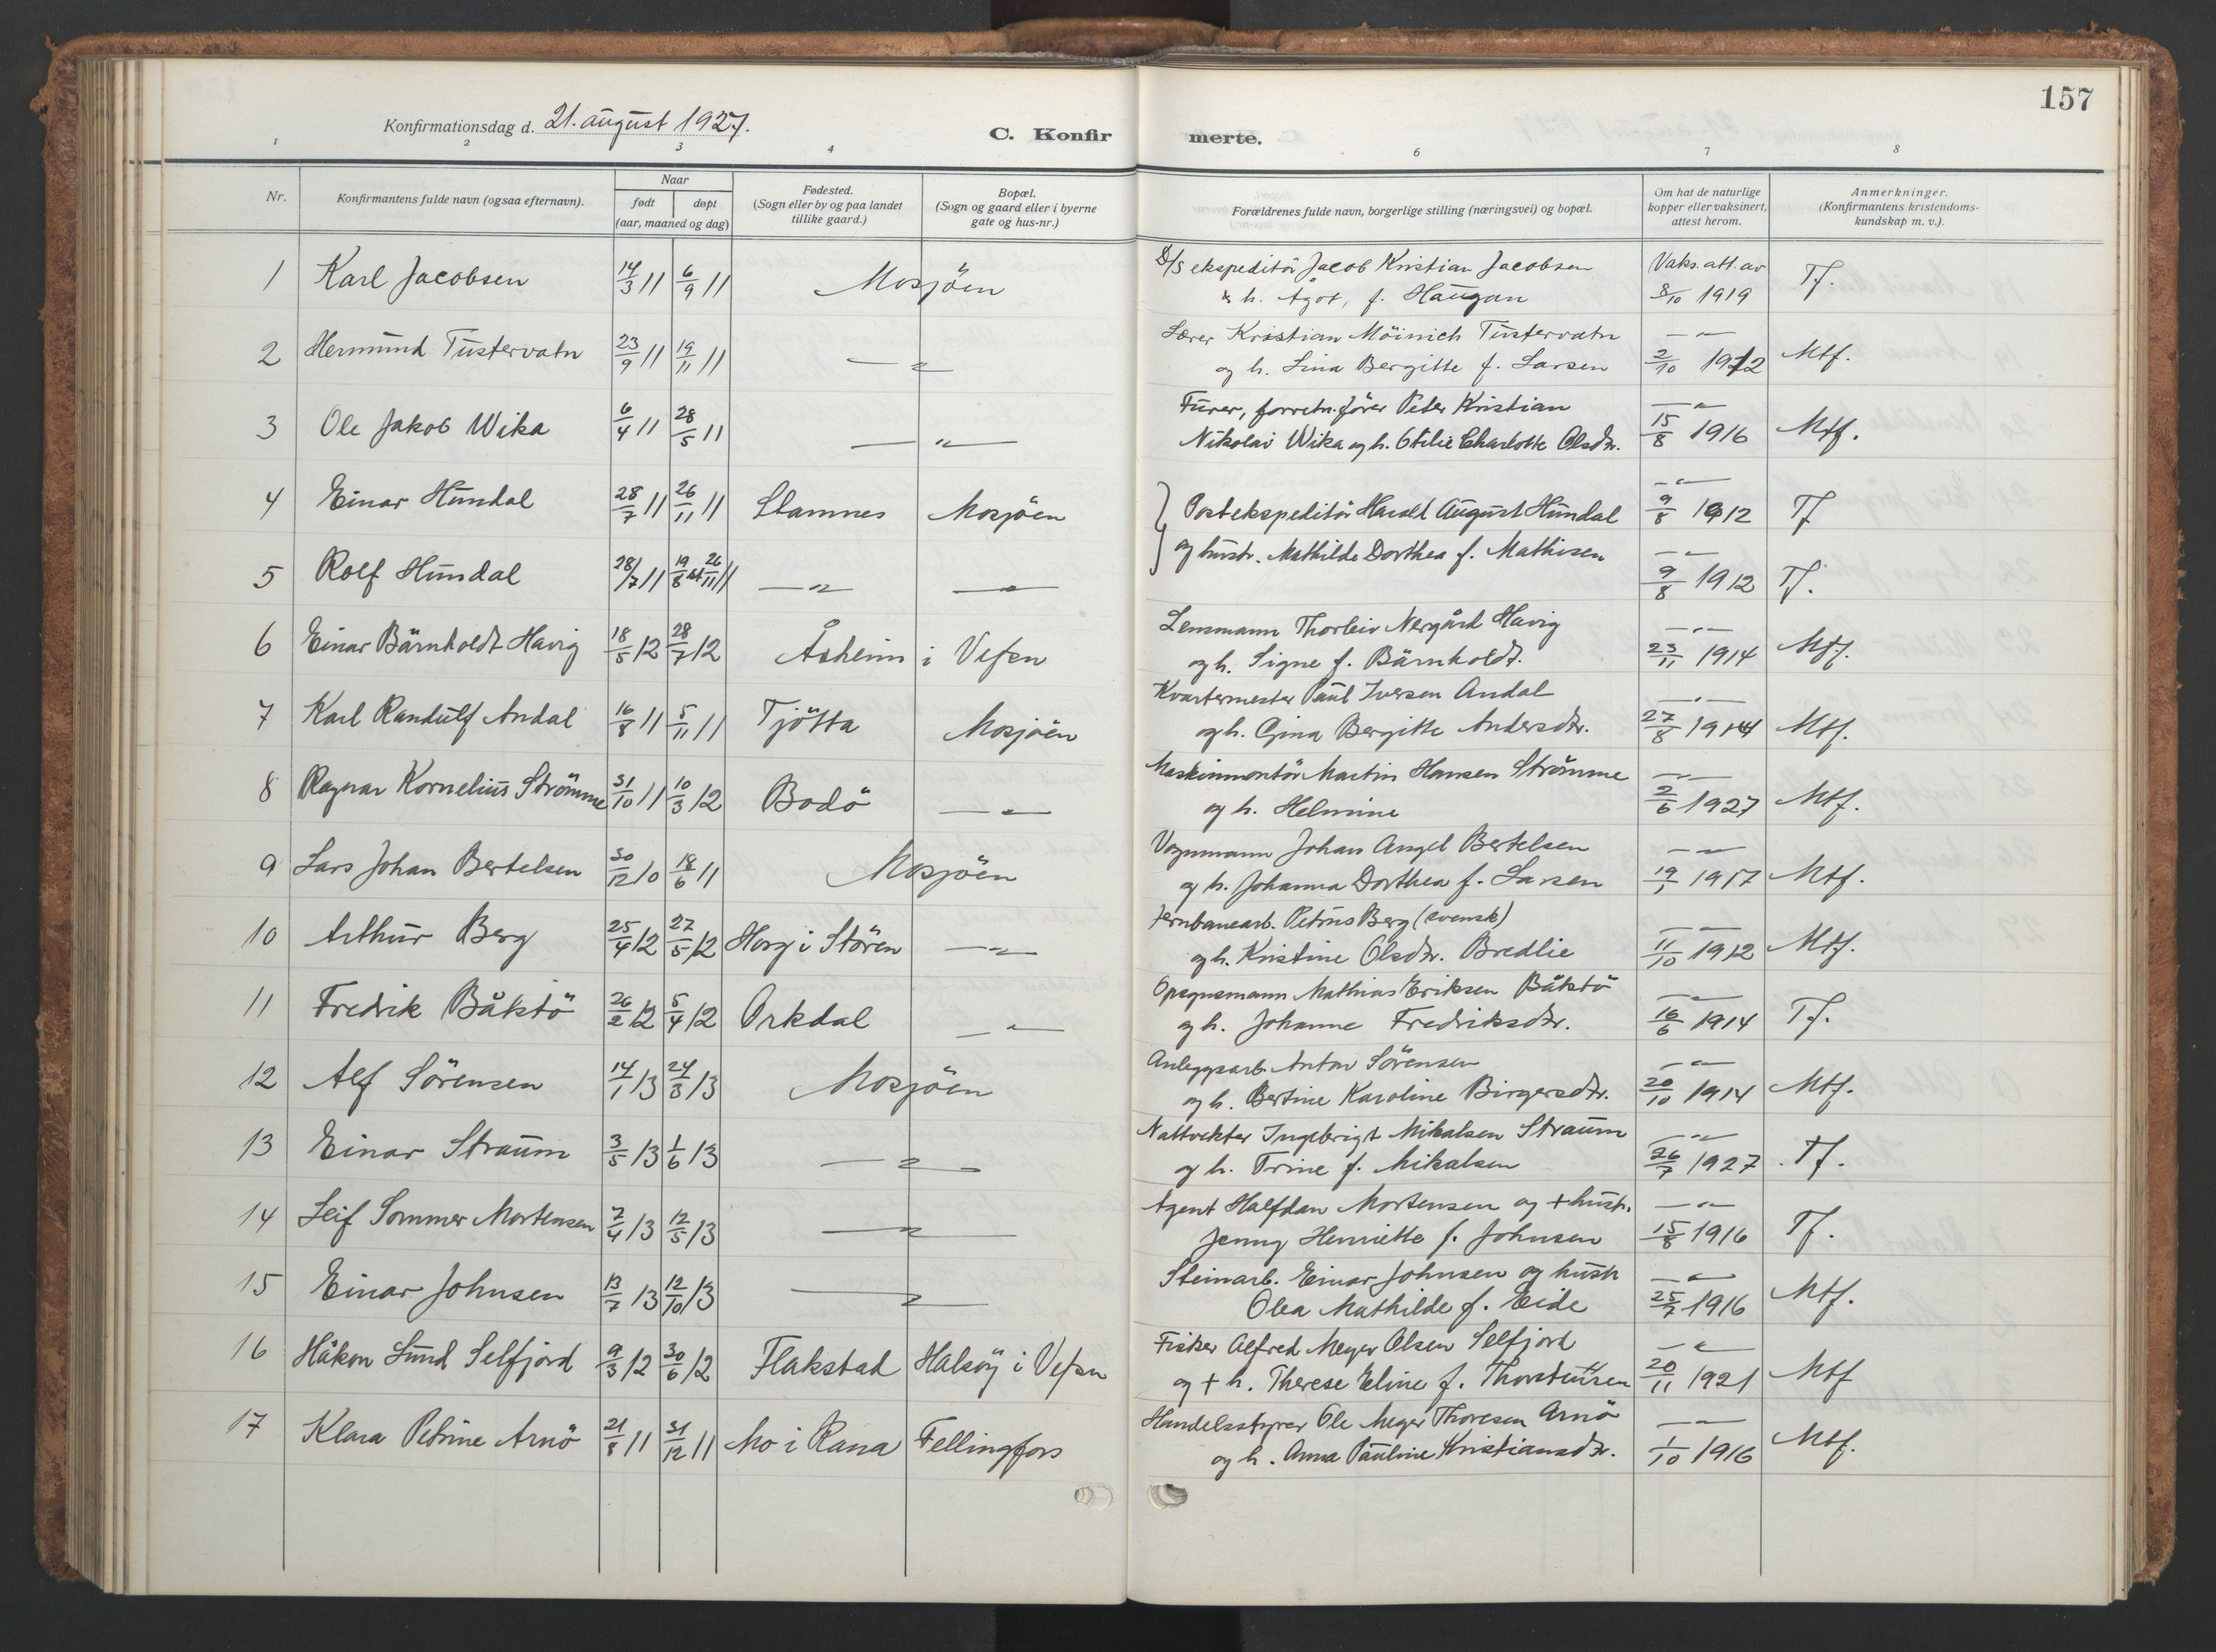 157
Konfirmationsdag d. 21. august 1927.
C. Konfir merte.
1 2 3 4 6 7 8
Nr. Konfirmantens fulde navn (ogsaa efternavn). Naar født døpt (aar, maaned og dag) Fødested. (Sogn eller by og paa landet tillike gaard.) Bopæl. (Sogn og gaard eller i byerne gate og hus-nr.) Forældrenes fulde navn, borgerlige stilling (næringsvei) og bopæl. Om hat de naturlige kopper eller vaksinert, attest herom. Anmerkninger. (Konfirmantens kristendoms-kundskap m. v.).
1 Karl Jacobsen 14/3 11 6/9 11 Mosjöen D/S ekspeditör Jacob Kristian Jacobsen Vaks. att. av Tf.
& h. Ågot, f. Haugan 8/10 1919
2 Hermund Tustervatn 23/9 11 19/11 11 — " — Lærer Kristian Möinich Tustervatn — " —
og h. Lina Bergitte f. Larsen 2/10 1912 Mtf.
3 Ole Jakob Wika 6/4 11 28/5 11 — " — Furer, forretn.förer Peter Kristian — " —
Nikolai Wika og h. Otilie Charlotte Olsdtr. 15/8 1916 Mtf.
4 Einar Hundal 28/7 11 26/11 11 Stamnes Mosjöen Postekspeditör Harald August Hundal — " — 9/8 1912 Tf
5 Rolf Hundal 28/7 11 19/8 st 26/11 11 — " — — " — og hustr. Mathilde Dorthea f. Mathisen — " — 9/8 1912 Tf.
6 Einar Bärnholdt Havig 18/5 12 28/7 12 Åsheim i Vefsn Lensmann Thorleiv Nergård Havig — " —
og h. Signe f. Bärnholdt. 23/11 1914 Mtf.
7 Karl Randulf Andal 16/8 11 5/11 11 Tjötta Mosjöen Kvartermester Paul Iversen Andal — " —
og h. Gina Bergitte Andersdtr. 27/8 1914 Mtf.
8 Ragnar Kornelius Strömme 31/10 11 10/3 12 Bodö — " — Maskinmontör Martin Hansen Strömme — " —
og h. Helmine 2/6 1927 Mtf.
9 Lars Johan Bertelsen 30/12 10 18/6 11 Mosjöen Vognmann Johan Angel Bertelsen — " —
og h. Johanna Dorthea f. Larsen 19/1 1917 Mtf.
10 Arthur Berg 25/4 12 27/5 12 Horg i Stören — " — Jernbanearb. Petrus Berg (svensk) — " —
og h. Kristine Olsdtr. Bredlie 11/10 1912 Mtf.
11 Fredrik Båkstö 26/2 12 5/4 12 Orkdal — " — Opsynsmann Mathias Eriksen Båkstö — " —
og h. Johanne Fredriksdtr. 16/6 1914 Tf.
12 Alf Sörensen 14/1 13 24/3 13 Mosjöen Anleggsarb. Anton Sörensen — " —
og h. Bertine Karoline Birgersdtr. 20/10 1914 Mtf.
13 Einar Straum 3/5 13 1/6 13 — " — Nattvekter Ingebrigt Mikalsen Straum — " —
og h. Trine f. Mikalsen 26/7 1927 Tf.
14 Leif Sommer Mortensen 7/4 13 12/5 13 — " — Agent Halfdan Mortensen og + hustr. — " —
Jenny Henriette f. Johnsen 15/8 1916 Tf.
15 Einar Johnsen 13/7 13 12/10 13 — " — Steinarb. Einar Johnsen og hustr — " —
Olea Mathilde f. Eide 25/7 1916 Mtf.
16 Håkon Lund Selfjord 9/3 12 30/6 12 Flakstad Halsöy i Vefsn Fisker Alfred Meyer Olsen Selfjord — " —
og + h. Therese Eline f. Thorstensen 20/11 1921 Mtf
17 Klara Petrine Arnö 21/8 11 31/12 11 Mo i Rana Fellingfors Handelsstyrer Ole Meyer Thoresen Arnö — " —
og h. Anna Pauline Kristiansdtr. 1/10 1916 Mtf.